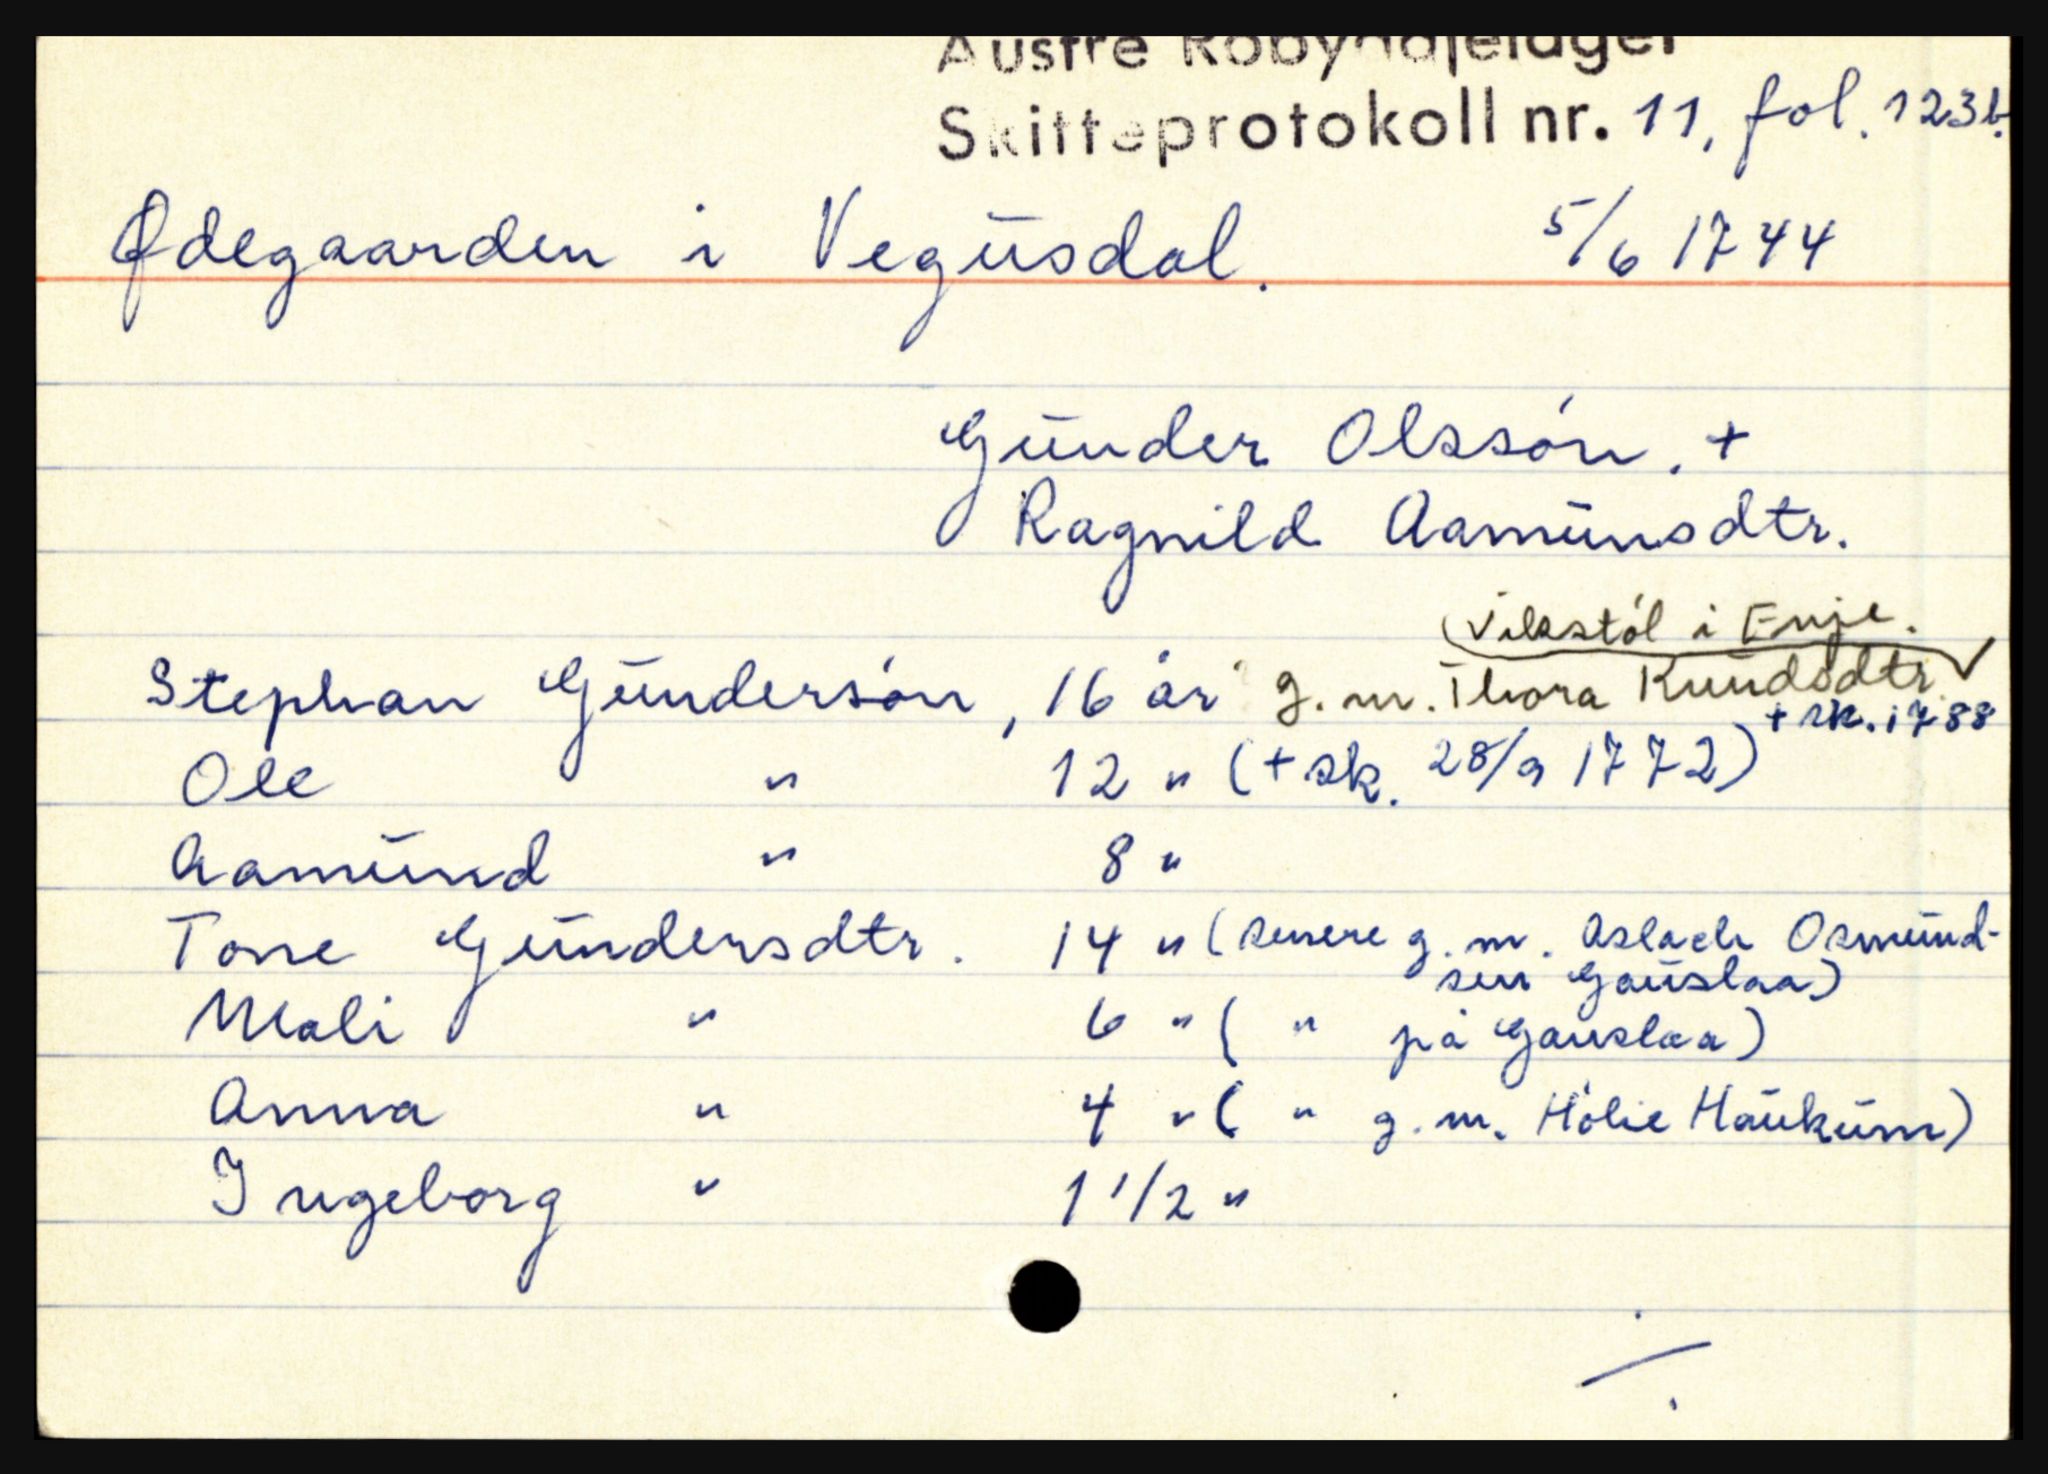 Austre Robyggjelaget
Skifteprotokoll nr. 11, fol. 123b.
Ødegaarden i Vegusdal. 5/6 1744
Gunder Olssøn. +
Ragnild Aamunsdtr.
(Vikstøl i Enje.
Stephan Gundersøn, 16 år g. m. Thora Knudsdtr.
+ sk. 1788
Ole " 12 " (+ sk. 28/9 1772)
Aamund " 8 "
Tone Gundersdtr. 14 " (senere g. m. Aslach Osmund-
sen Gauslaa)
Mali " 6 " ( " på Gauslaa)
Anna " 4 " ( " g. m. Hölie Haukum)
Ingeborg " 1 1/2 "
./.